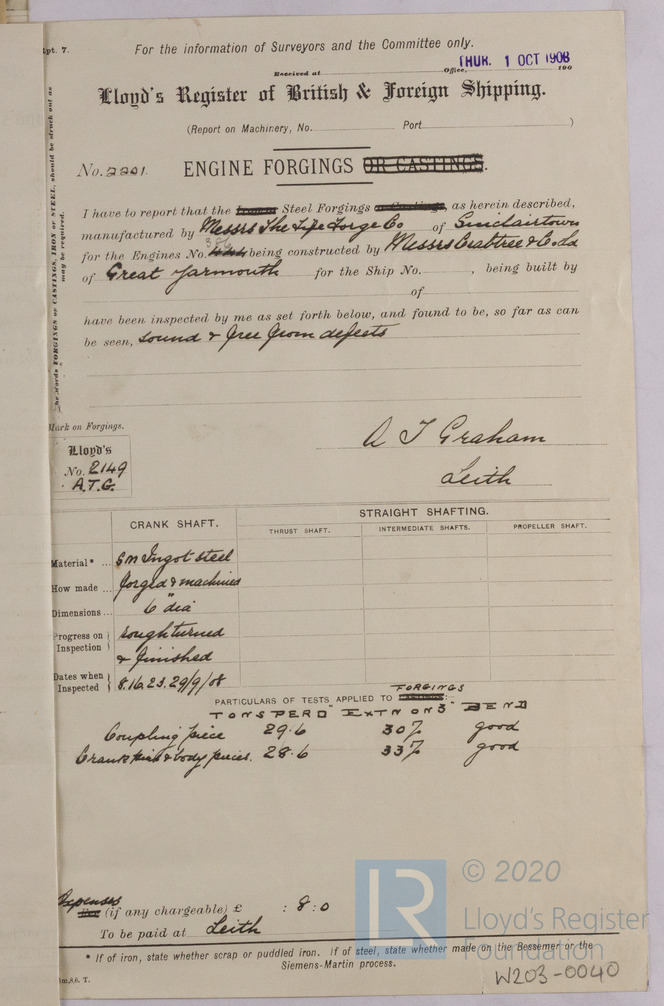 Rpt. 7.
For the information of Surveyors and the Committee only.
THUR. 1 OCT 1908
Received at Office, 190
Lloyd's Register of British & Foreign Shipping.
(Report on Machinery, No. Port )
No. 2201. ENGINE FORGINGS OR CASTINGS.
I have to report that the Steel Forgings or Castings, as herein described,
manufactured by Messrs The Fife Forge Co of Sinclairtown
for the Engines No. being constructed by Messrs Crabtree & Co Ld
of Great Yarmouth for the Ship No. , being built by
of
have been inspected by me as set forth below, and found to be, so far as can
be seen, sound & free from defects
The words FORGINGS or CASTINGS, IRON or STEEL, should be struck out as
may be required.
Mark on Forgings.
Lloyd's
No. 2149
A.T.G.
A T Graham
Leith
CRANK SHAFT.
STRAIGHT SHAFTING.
THRUST SHAFT. INTERMEDIATE SHAFTS. PROPELLER SHAFT.
Material* ... SM Ingot steel
How made ... forged & machined
Dimensions ... 6" dia
Progress on Inspection rough turned
& finished
Dates when Inspected 8.16.23.29/9/08
FORGINGS
PARTICULARS OF TESTS APPLIED TO CASTINGS:—
TONS PER □" EXTN ON 3" BEND
Coupling piece 29.6 30% good
Crank pin & body pieces. 28.6 33% good
Expenses
Fee (if any chargeable) £ : 8 : 0
To be paid at Leith
* If of iron, state whether scrap or puddled iron. If of steel, state whether made on the Bessemer or the
Siemens-Martin process.
1m,8,6. T.
LR
© 2020
Lloyd's Register
Foundation
W203-0040